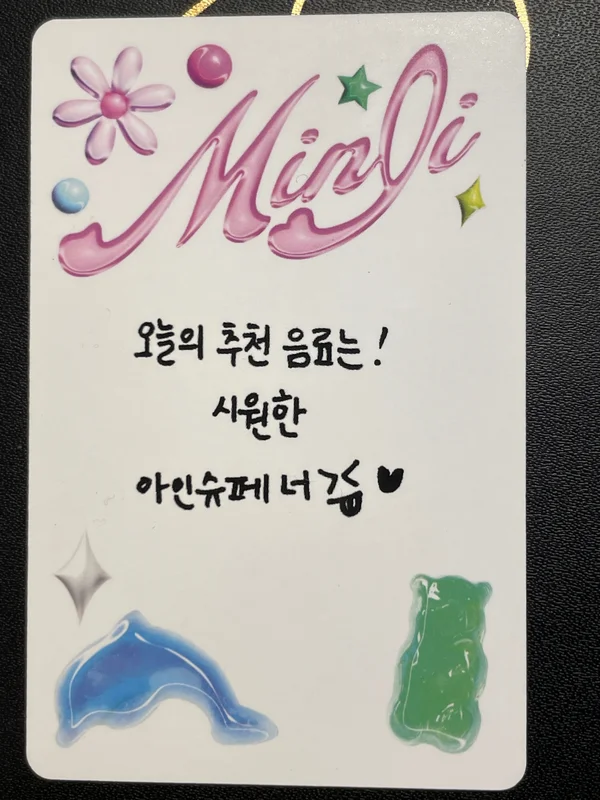 MinJi
오늘의 추천 음료는!
시원한
아인슈페너 굽 ♥